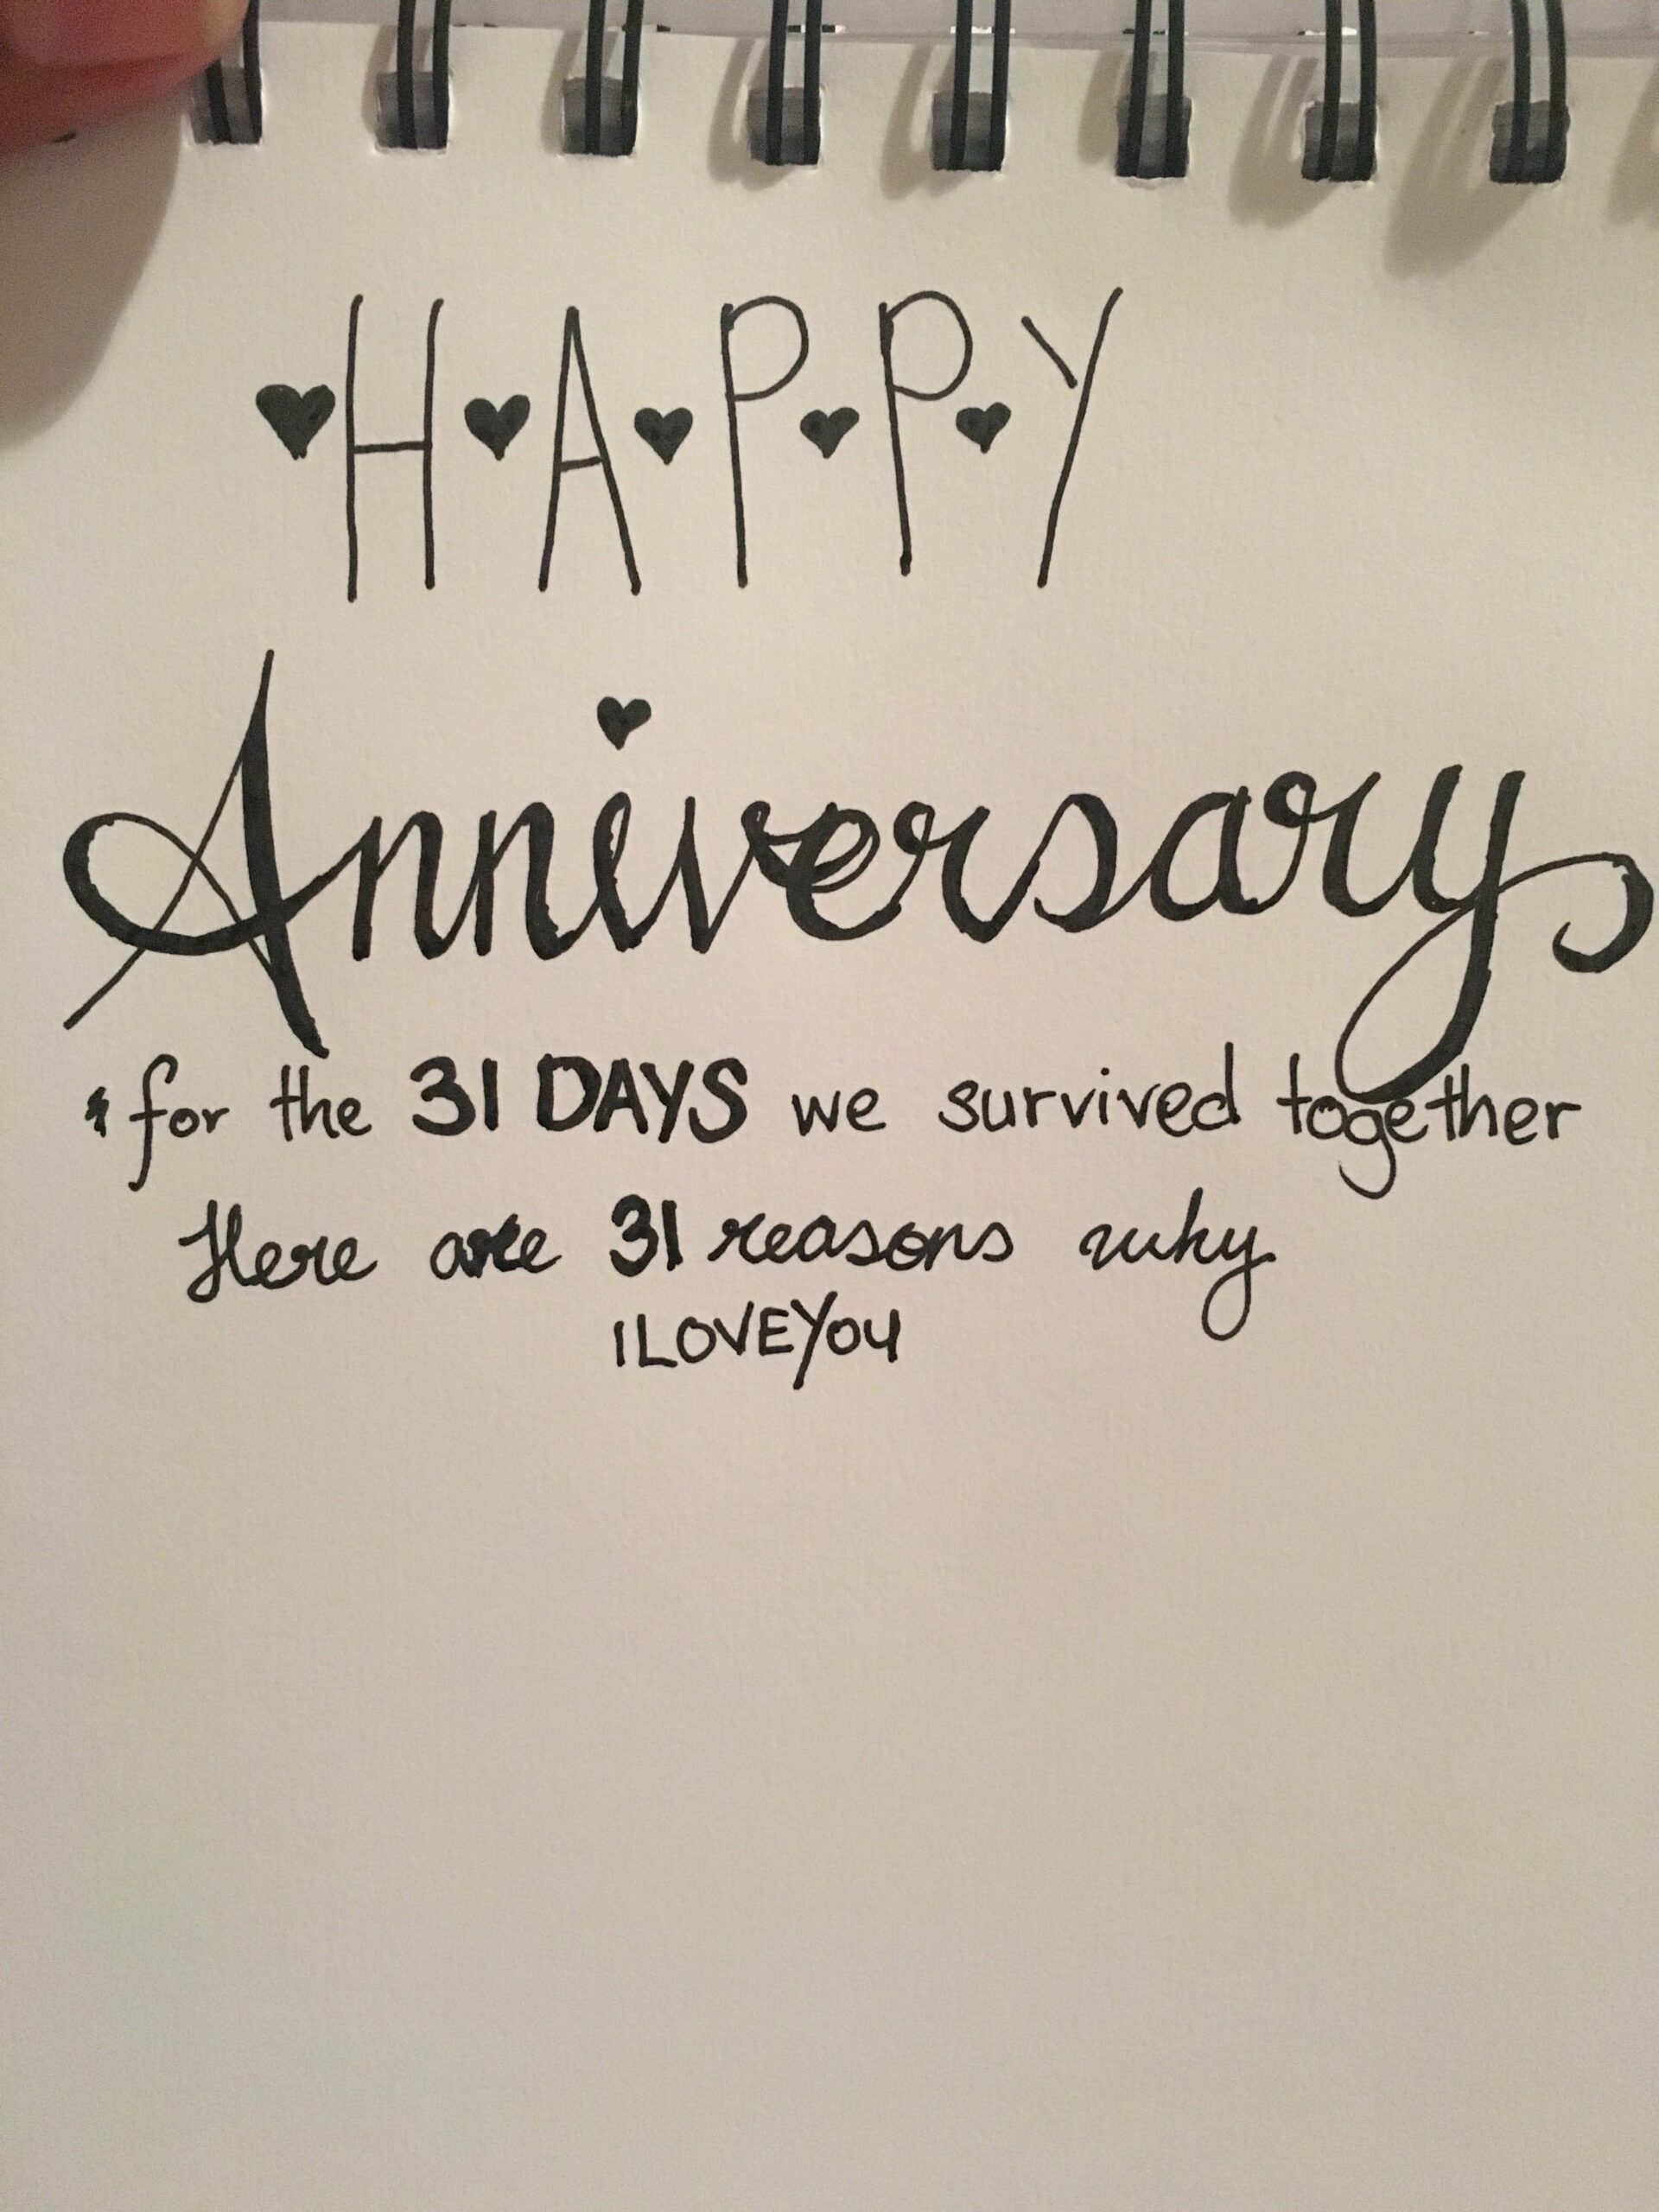 ♥H♥A♥P♥P♥Y
Anniversary
*for the 31 DAYS we survived together
Here are 31 reasons why
I LOVE YOU